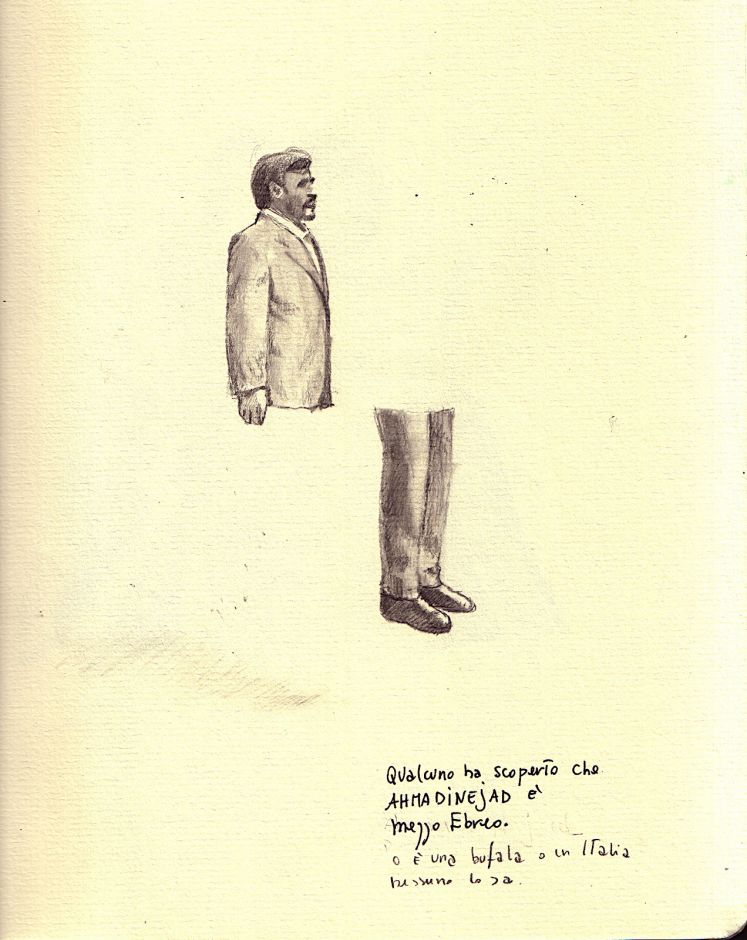 Qualcuno ha scoperto che
AHMADINEJAD è
mezzo Ebreo.
o è una bufala o in ITalia
nessuno lo sa.